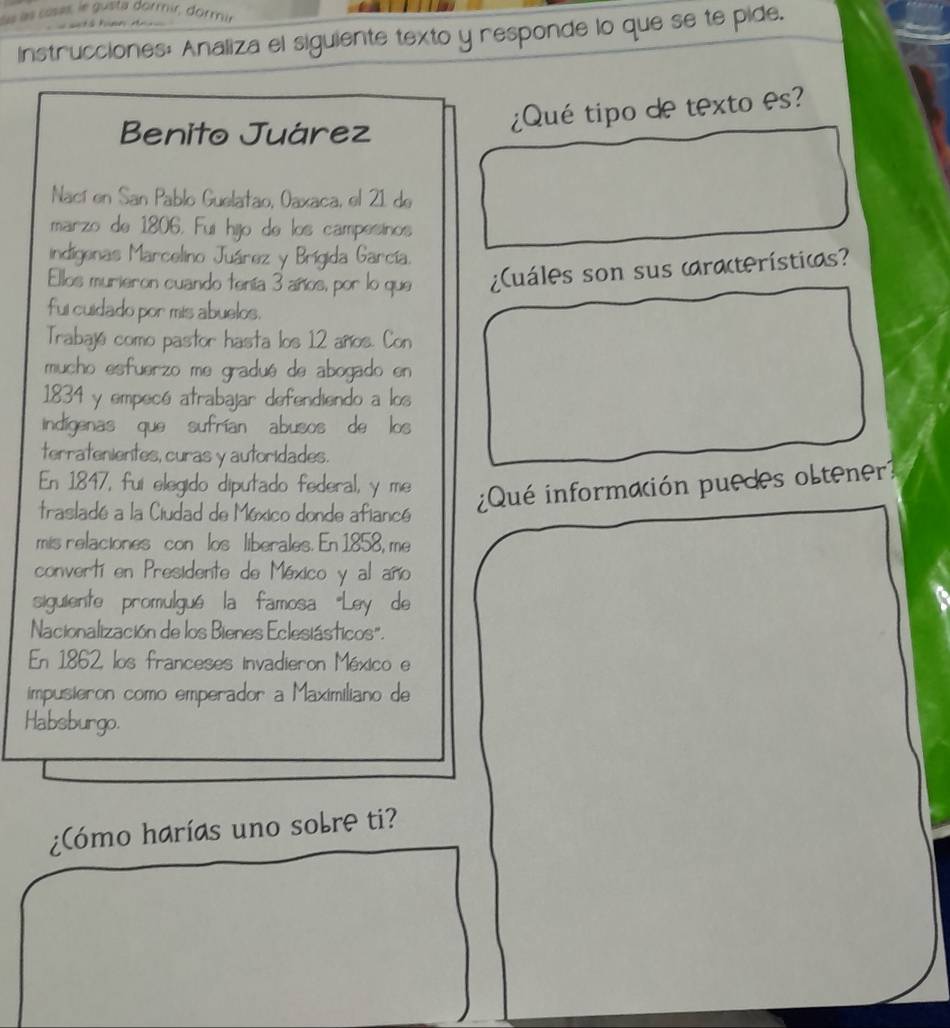 las las cosas, le gusta dormir, dormir
Instrucciones: Analiza el siguiente texto y responde lo que se te pide.
Benito Juárez
Nací en San Pablo Guelatao, Oaxaca, el 21 de
marzo de 1806. Fui hijo de los campesinos
indígenas Marcelino Juárez y Brígida García.
Ellos murieron cuando tenía 3 años, por lo que
fui cuidado por mis abuelos.
Trabajé como pastor hasta los 12 años. Con
mucho esfuerzo me gradué de abogado en
1834 y empecé atrabajar defendiendo a los
indígenas que sufrían abusos de los
terratenientes, curas y autoridades.
En 1847, fui elegido diputado federal, y me
trasladé a la Ciudad de México donde afiancé
mis relaciones con los liberales. En 1858, me
convertí en Presidente de México y al año
siguiente promulgué la famosa "Ley de
Nacionalización de los Bienes Eclesiásticos".
En 1862, los franceses invadieron México e
impusieron como emperador a Maximiliano de
Habsburgo.
¿Qué tipo de texto es?
¿Cuáles son sus características?
¿Qué información puedes obtener?
¿Cómo harías uno sobre ti?